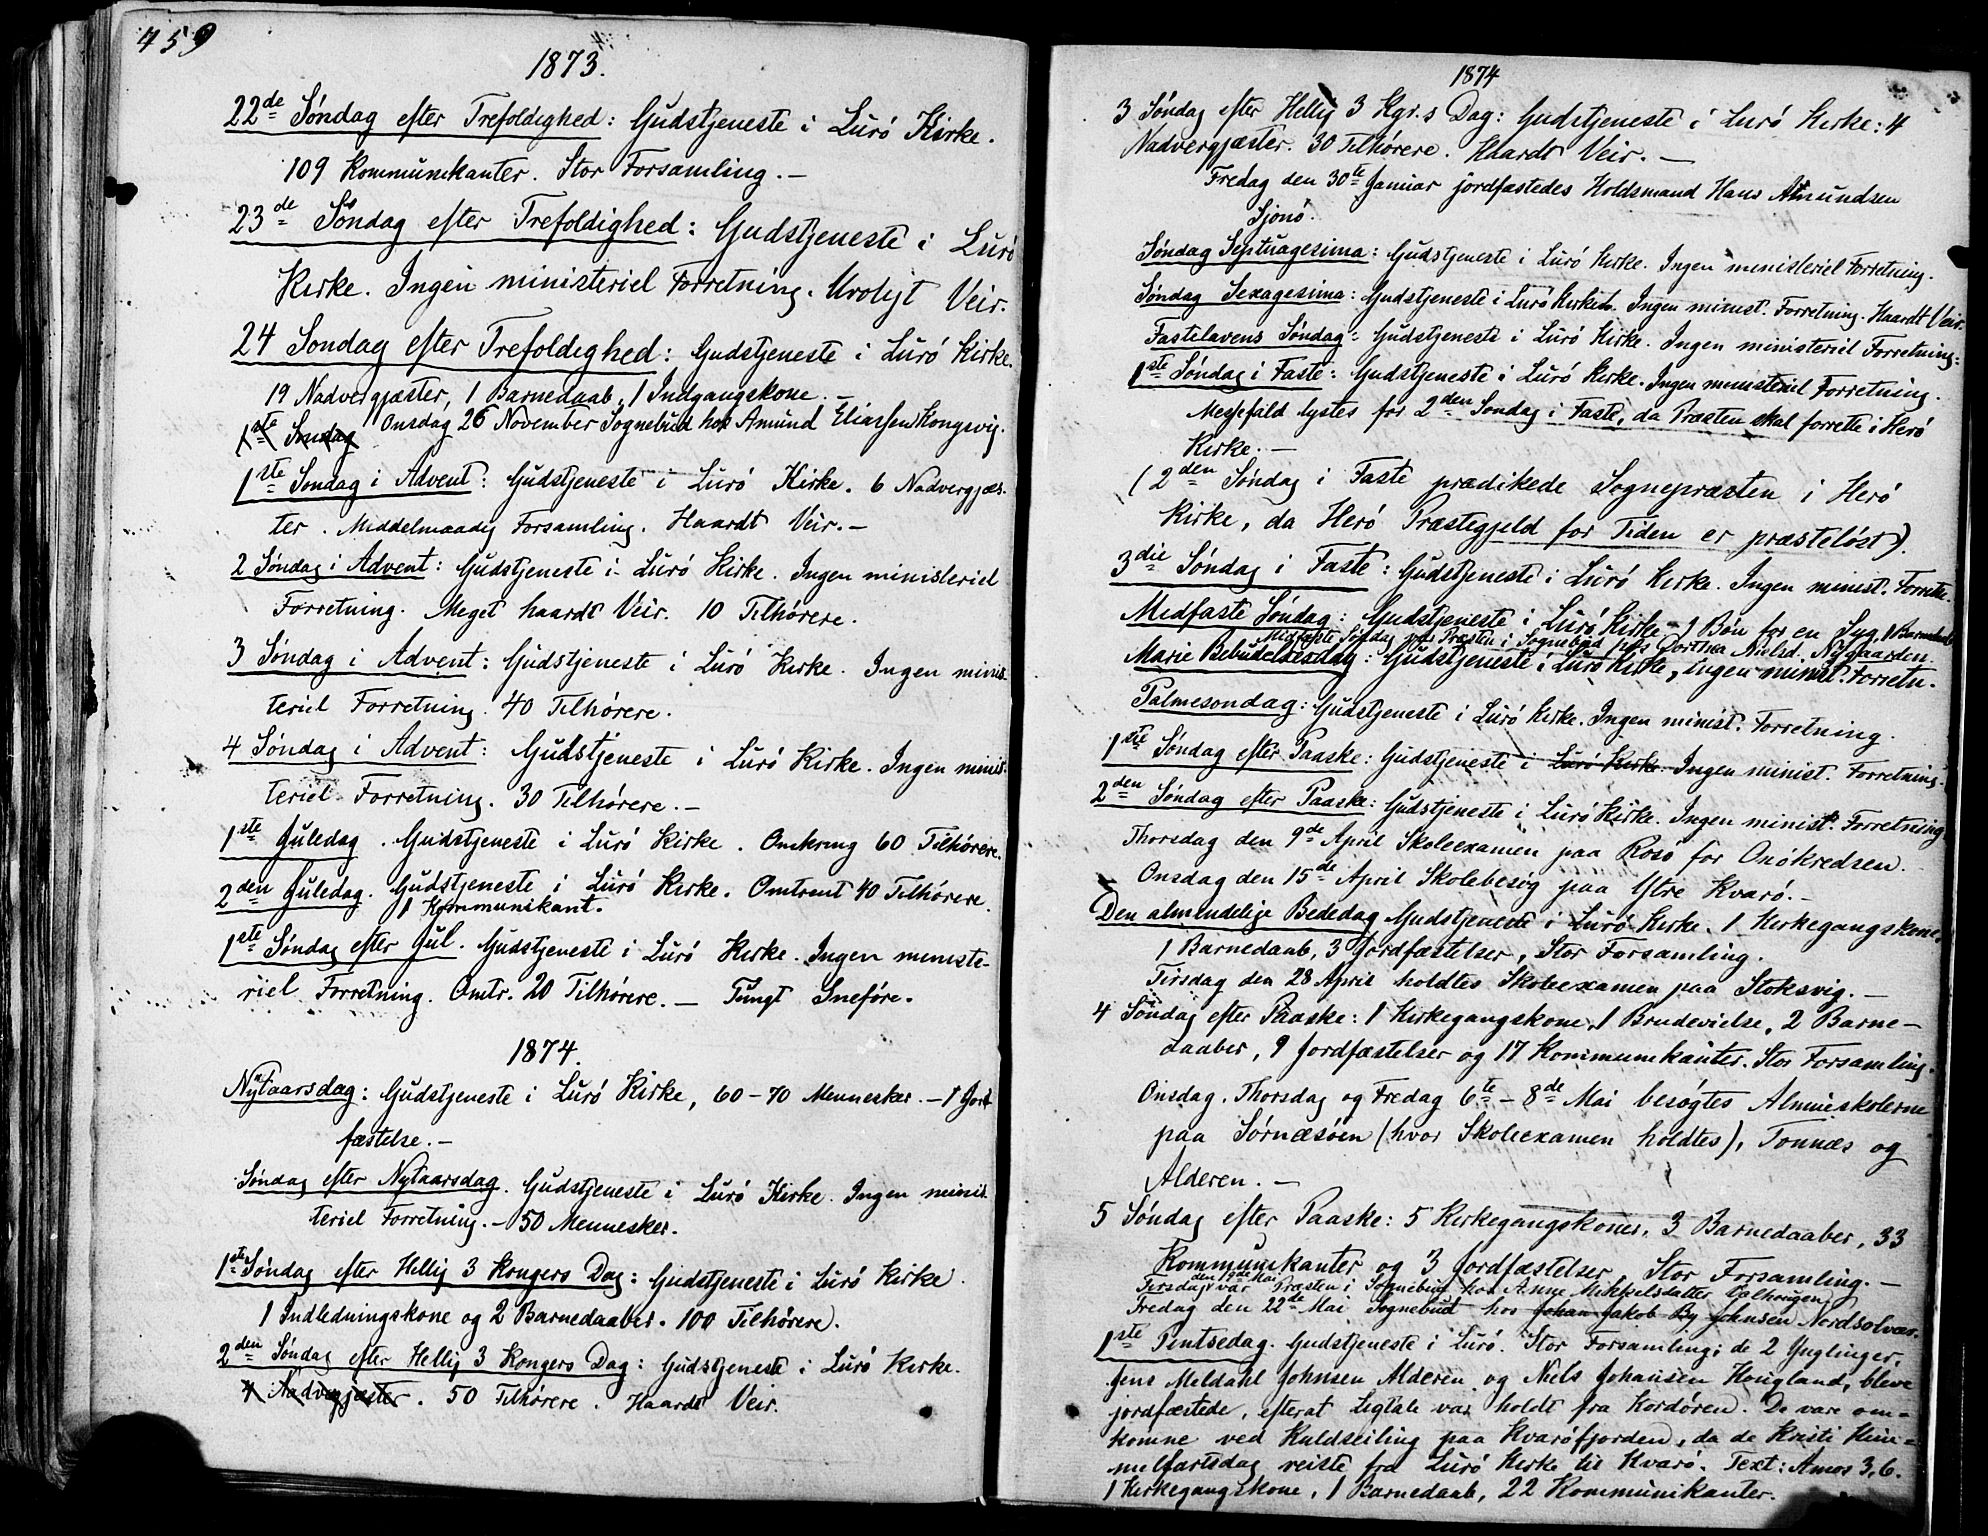 459
1873.
22de Søndag efter Trefoldighed: Gudstjeneste i Lurö Kirke.
109 Kommunikanter. Stor Forsamling. —
23de Søndag efter Trefoldighed: Gudstjeneste i Lurö
Kirke. Ingen ministeriel Forretning. Uroligt Veir.
24 Søndag efter Trefoldighed: Gudstjeneste i Lurö Kirke.
19 Nadvergjæster, 1 Barnedaab, 1 Indgangskone. —
1ste Søndag Onsdag 26 November Sognebud hos Amund Eliassen Kongsvig.
1ste Søndag i Advent: Gudstjeneste i Lurö Kirke. 6 Nadvergjæs-
ter. Middelmaadig Forsamling. Haardt Veir. —
2 Søndag i Advent: Gudstjeneste i Lurö Kirke. Ingen ministeriel
Forretning. Meget haardt Veir. 10 Tilhørere.
3 Søndag i Advent: Gudstjeneste i Lurö Kirke. Ingen minis-
teriel Forretning. 40 Tilhørere.
4 Søndag i Advent: Gudstjeneste i Lurö Kirke. Ingen minis-
teriel Forretning. 30 Tilhørere. —
1ste Juledag. Gudstjeneste i Lurö Kirke. Omkring 60 Tilhørere.
2den Juledag. Gudstjeneste i Lurö Kirke. Omtrent 40 Tilhørere.
1 Kommunikant.
1ste Søndag efter Jul. Gudstjeneste i Lurö Kirke. Ingen ministe-
riel Forretning. Omtr. 20 Tilhørere. — Tungt Sneföre.
1874.
Nytaarsdag: Gudstjeneste i Lurö Kirke, 60-70 Mennesker. — 1 Jord-
fæstelse. —
Søndag efter Nytaarsdag. Gudstjeneste i Lurö Kirke. Ingen minis-
teriel Forretning. — 50 Mennesker.
1ste Søndag efter Hellig 3 Kongers Dag: Gudstjeneste i Lurö Kirke.
1 Indledningskone og 2 Barnedaaber. 100 Tilhørere.
2den Søndag efter Hellig 3 Kongers Dag: Gudstjeneste i Lurö Kirke.
4 Nadvergjæster. 50 Tilhørere. Haardt Veir.
1874
3 Søndag efter Hellig 3 Kgr.s Dag: Gudstjeneste i Lurö Kirke: 4
Nadvergjæster. 30 Tilhørere. Haardt Veir. —
Fredag den 30te Januar jordfæstedes Holdsmand Hans Amundsen
Sjonö.
Søndag Septuagesima: Gudstjeneste i Lurö Kirke. Ingen ministeriel Forretning.
Søndag Sexagesima: Gudstjeneste i Lurö Kirke. Ingen minist. Forretning. Haardt Veir.
Fastelavens Søndag: Gudstjeneste i Lurö Kirke. Ingen ministeriel Forretning.
1ste Søndag i Faste: Gudstjeneste i Lurö Kirke. Ingen ministeriel Forretning.
Messefald lystes for 2den Søndag i Faste, da Præsten skal forrette i Herö
Kirke. —
(2den Søndag i Faste prædikede Sognepræsten i Herö
Kirke, da Herö Præstegjeld for Tiden er præsteløst).
3die Søndag i Faste: Gudstjeneste i Lurö Kirke. Ingen minist. Forretn.
Midfaste Søndag: Gudstjeneste i Lurö Kirke. 1 Bön for en Syg, 1 Barnedaab
Midfaste Søndag var Præsten i Sognebud hos Dorthea Nielsd. Nygaarden.
Marie Bebudelsesdag: Gudstjeneste i Lurö Kirke, ingen minist. Forretn.
Palmesøndag: Gudstjeneste i Lurö Kirke. Ingen minist. Forretning.
1ste Søndag efter Paaske: Gudstjeneste i Lurö Kirke. Ingen minist. Forretning.
2den Søndag efter Paaske: Gudstjeneste i Lurö Kirke. Ingen minist. Forretning
Thorsdag den 9de April Skoleexamen paa Rosö for Onökredsen.
Onsdag den 15de April Skolebesøg paa Ytre Kvarö. —
Den almindelige Bededag Gudstjeneste i Lurö Kirke. 1 Kirkegangskone,
1 Barnedaab, 3 Jordfæstelser, Stor Forsamling.
Tirsdag den 28 April holdtes Skoleexamen paa Stoksvig. —
4 Søndag efter Paaske: 1 Kirkegangskone, 1 Brudevielse, 2 Barne-
daaber, 9 Jordfæstelser og 17 Kommunikanter. Stor Forsamling.
Onsdag, Thorsdag og Fredag 6te - 8de Mai besøgtes Almueskolerne
paa Sörnæsöen (hvor Skoleexamen holdtes), Tonnæs og
Alderen. —
5 Søndag efter Paaske: 5 Kirkegangskoner, 3 Barnedaaber, 33
Kommunikanter og 3 Jordfæstelser. Stor Forsamling. —
Tirsdag den 19de Mai var Præsten i Sognebud hos Anne Mikkelsdatter
Fredag den 22de Mai Sognebud hos Johan Jakob Johnsen Nordsolvær.
1ste Pintsedag. Gudstjeneste i Lurö. Stor Forsamling; de 2 Ynglinger,
Jens Meldahl Johnsen Alderen og Niels Johansen Haugland, bleve
jordfæstede, efterat Ligtale var holdt fra Kordören. De vare om-
komne ved Kuldseiling paa Kvaröfjorden, da de Kristi Him-
melfartsdag reiste fra Lurö Kirke til Kvarö. Text: Amos 3,6.
1 Kirkegangskone, 1 Barnedaab, 22 Kommunikanter.